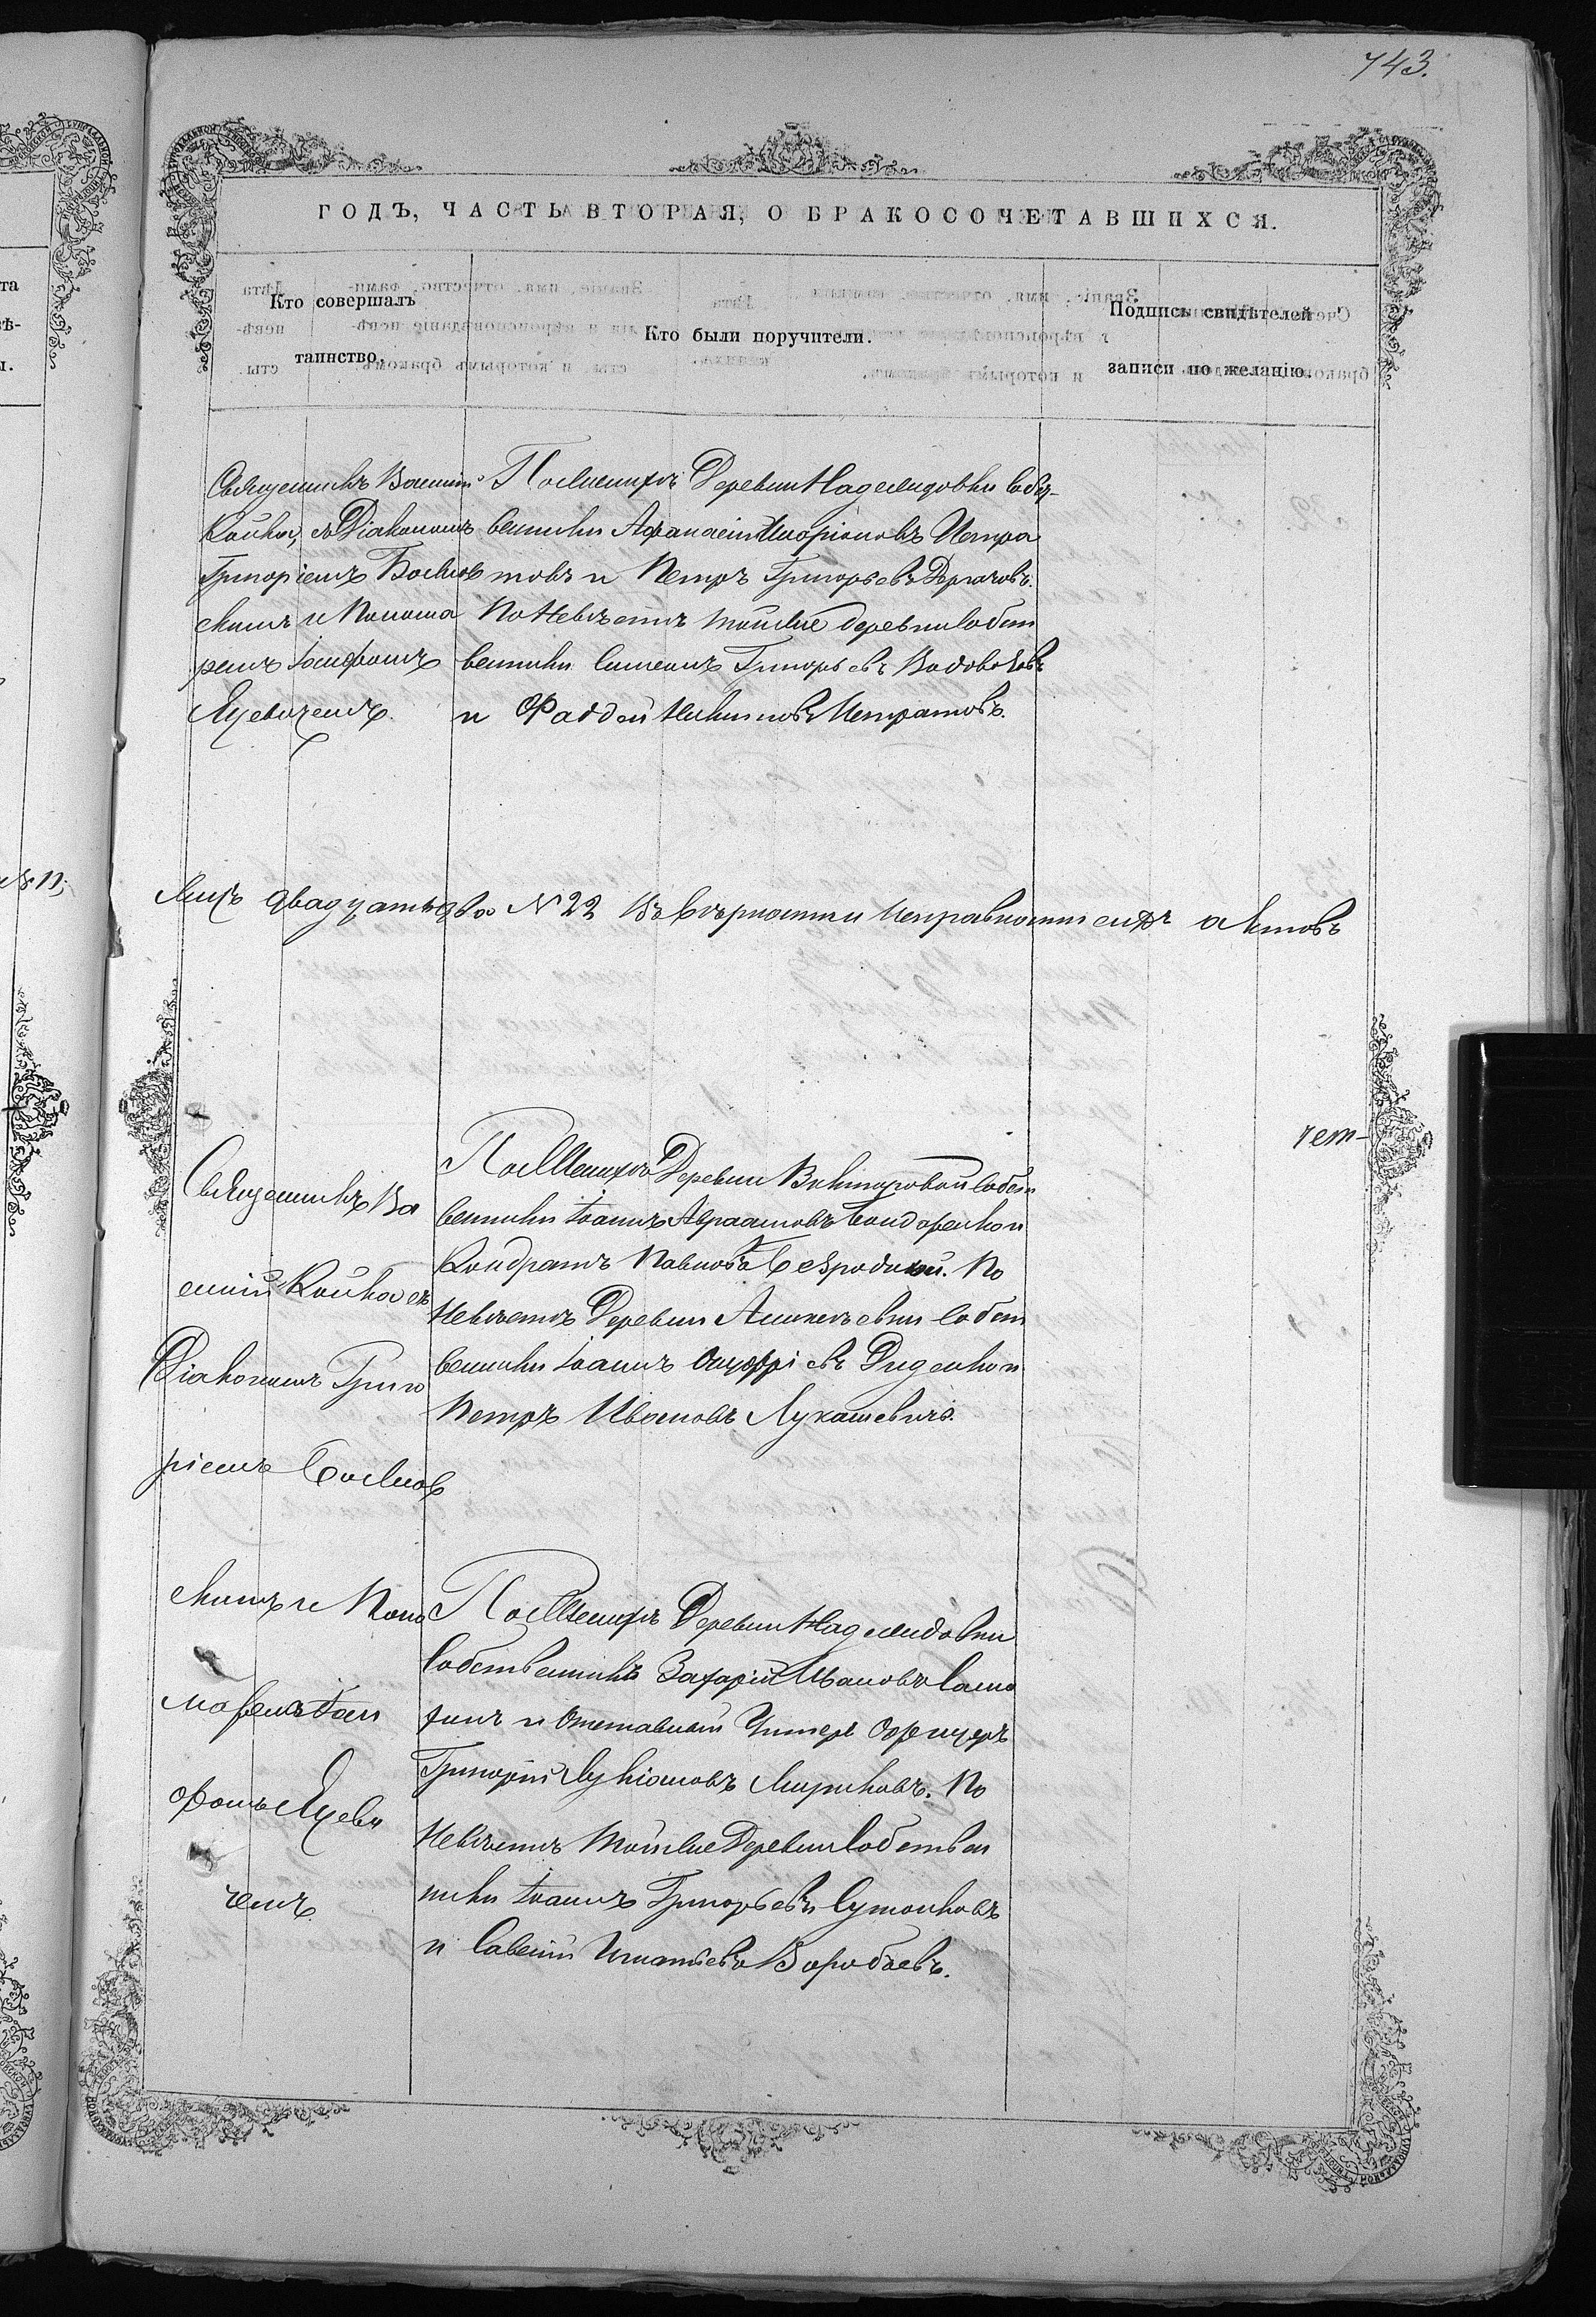 743.
ГОДЪ, ЧАСТЬ ВТОРАЯ, О БРАКОСОЧЕТАВШИХСЯ.
Кто совершалъ
таинство.
Кто были поручители.
Подпись свидѣтелей
записи по желанію.
Священникъ Василій
Койко, съ Діакономъ
Григоріемъ Боснов
скимъ и Понома
ремъ Іосифомъ
Яцевичемъ.
По Женихѣ Деревни Надеждовки Собст-
венники Афанасій Иларіоновъ Истра
товъ и Петръ Григорьевъ Дергачовъ.
По Невѣстѣ той же деревни Собст
венники Симеонъ Григорьевъ Водовозовъ
и Фаддей Никитовъ Истратовъ.
лицъ двадцать два № 22 Въ вѣрности и исправности сихъ актовъ
чет-
Священникъ Ва
силій Койко съ
Діакономъ Григо
ріемъ Боснов
скимъ и Поно
маремъ Іоси
фомъ Яцеви
чемъ.
По Женихѣ Деревни Викторовой Собст
венники Іоаннъ Авраамовъ Бондаренко и
Кондратъ Павловъ Безродный. По
Невѣстѣ Деревни Алексѣевки Собст
венники Іоаннъ Онуфріевъ Диденко и
Петръ Ивановъ Лукашевичъ.
По Женихѣ Деревни Надеждовки
Собственникъ Захарій Ивановъ Само
хинъ и Отставной Унтеръ Офицеръ
Григорій Лукіановъ Мириковъ. По
Невѣстѣ той же Деревни Собствен
ники Іоаннъ Григорьевъ Сутонковъ
и Савелій Игнатьевъ Воробьевъ.